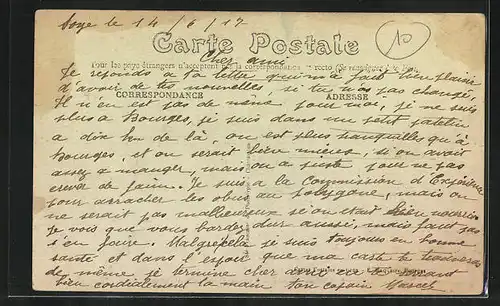 Soye le 14/6/17
10
Carte Postale
Cher ami
Tous les pays étrangers n'acceptent pas la correspondance au recto
Je reponds a ta lettre qui m'a fait bien plaisir
d'avoir de tes nouvelles, si tu n'as pas changé,
CORRESPONDANCE ADRESSE
il n'en est pas de meme pour moi, je ne suis
plus a Bourges, je suis dans un petit patelin
a dix km de là, on est plus tranquilles qu'à
Bourges, et on serait bien mieux, si on avait
assez a manger, mais on a juste pour ne pas
crever de faim. Je suis a la Commission d'Expérience
pour arracher les obus au polygone, mais on
ne serait pas malheureux si on était bien nourris
Je vois que vous bardez dur aussi, mais faut pas
s'en faire. Malgré cela je suis toujours en bonne
santé et dans l'espoir que ma carte te trouvera
de même, je termine cher ami en te serrant
bien cordialement la main Ton copain